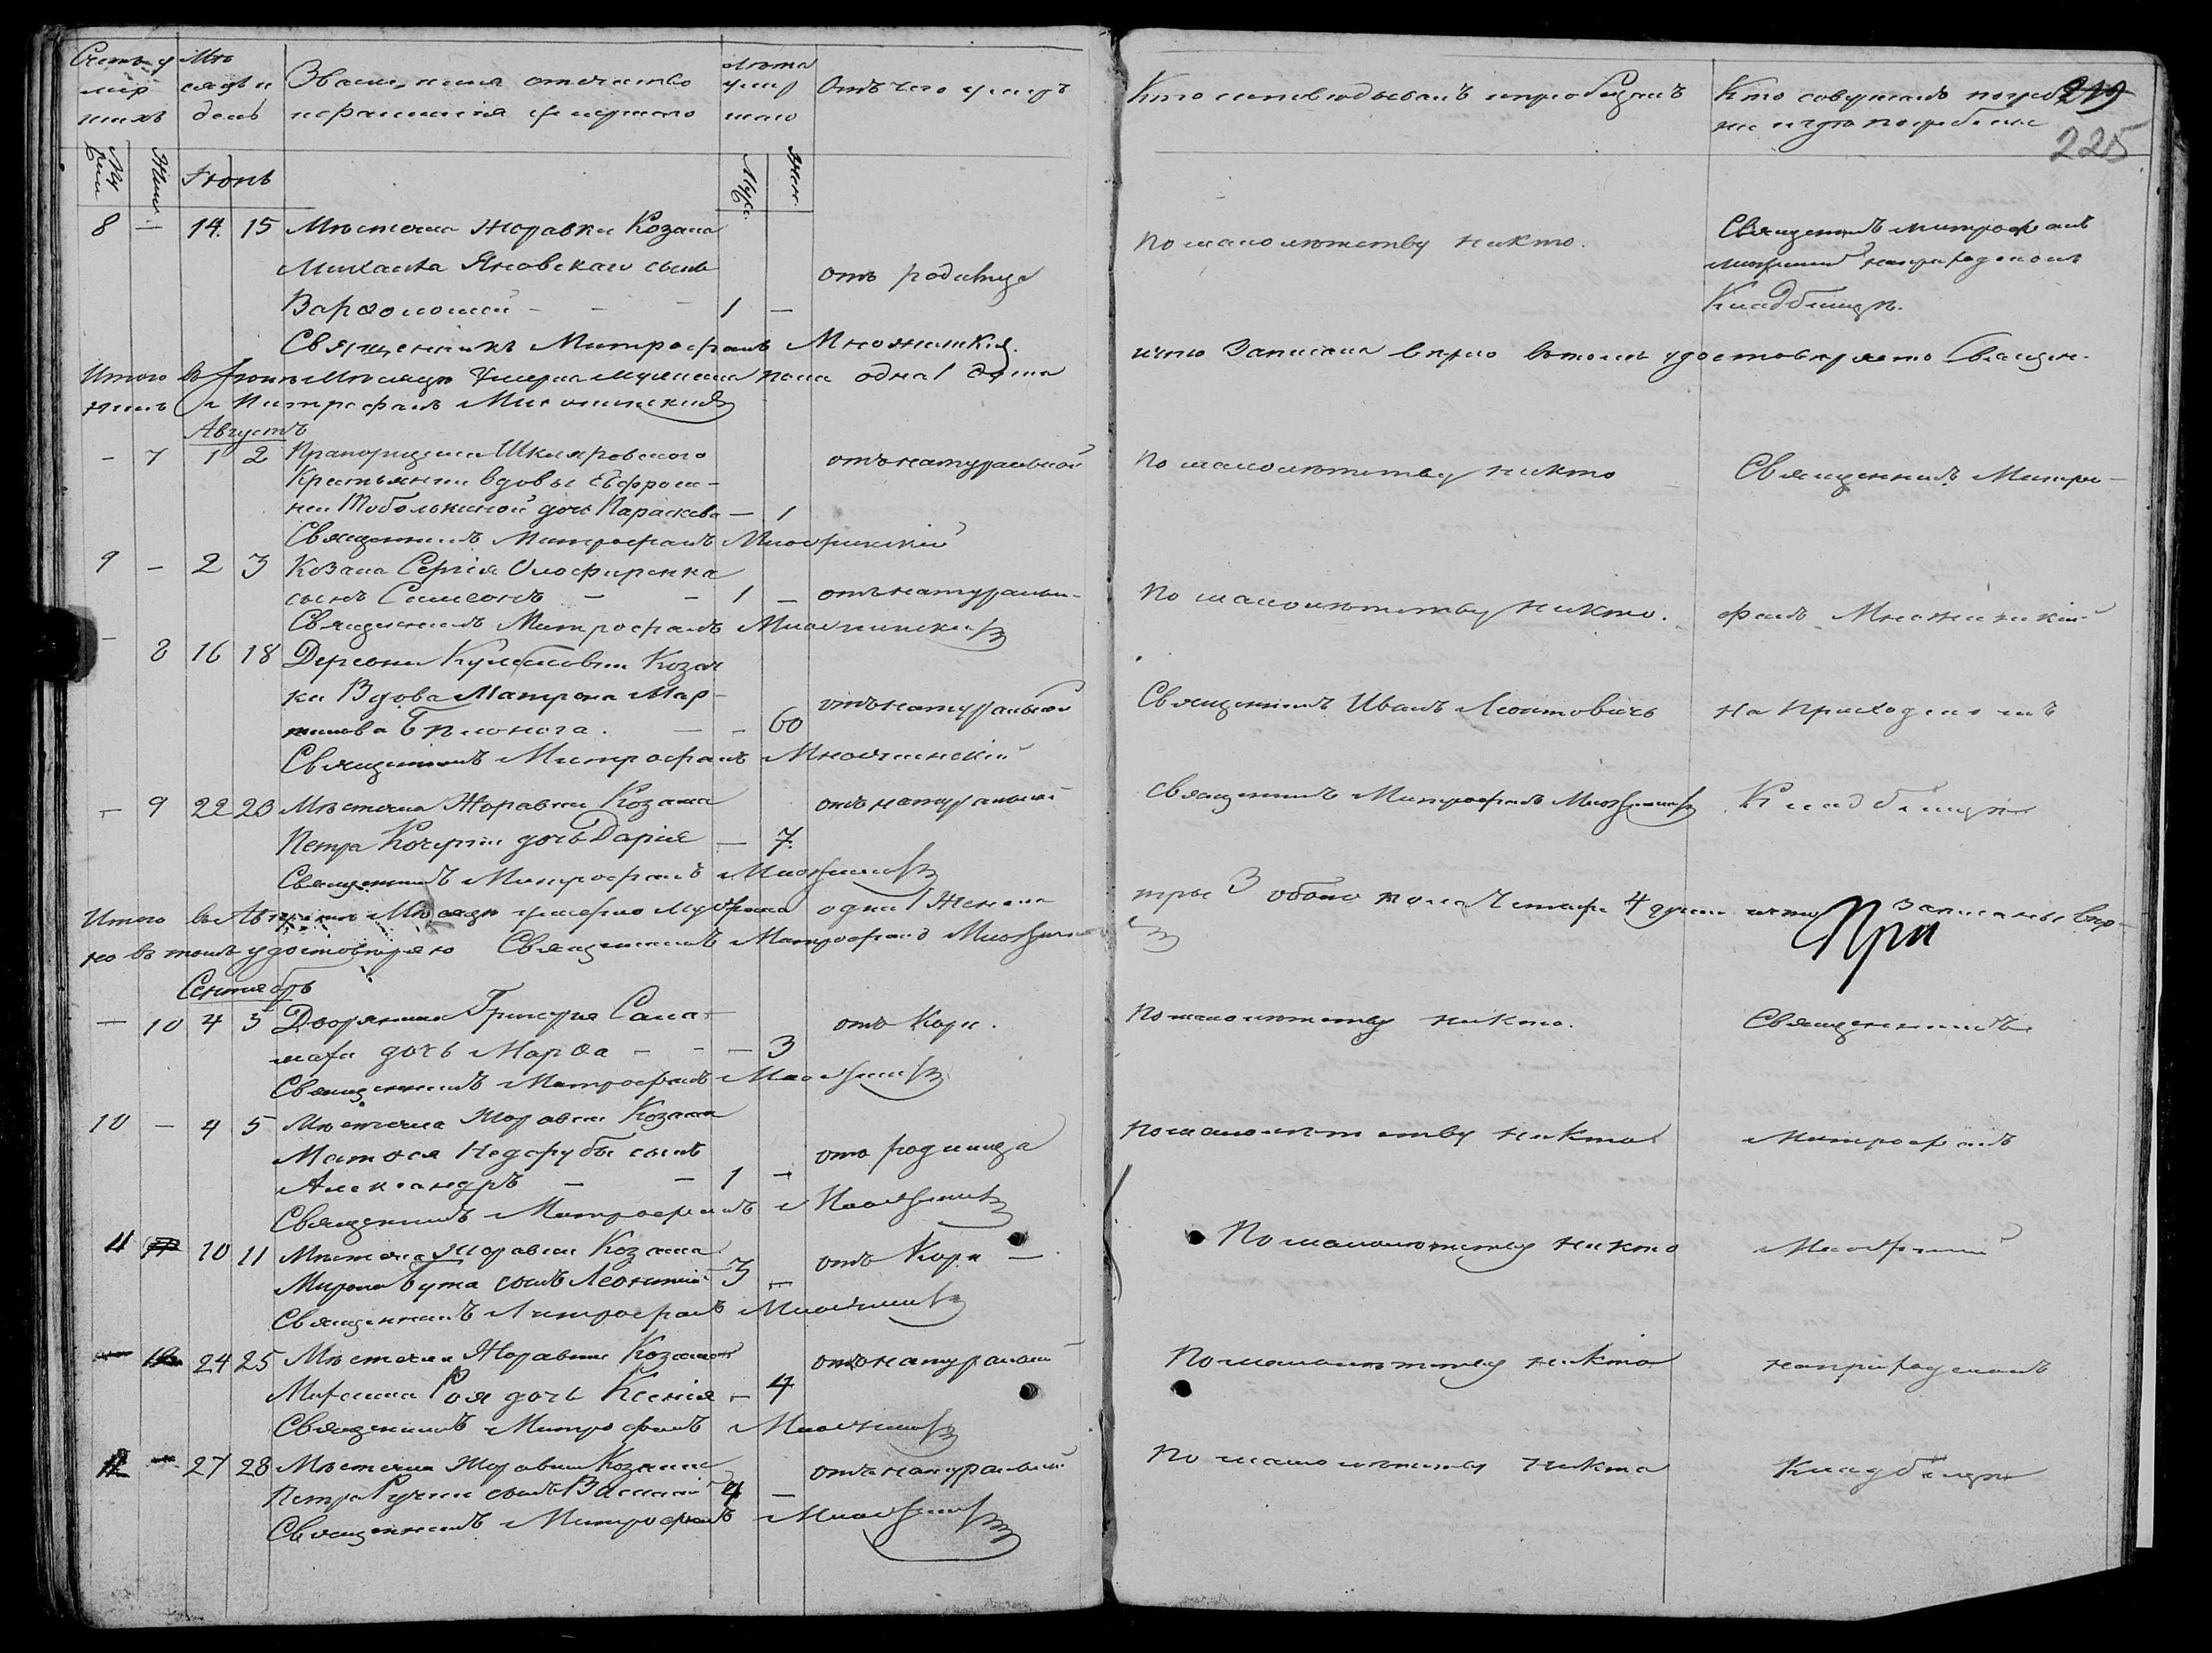 Счетъ умершихъ
Мѣсяцъ и день
Званіе, имя отечество
и фамилія умершаго
Лѣта умершаго
Отъ чего умеръ
Кто исповѣдывалъ и пріобщалъ
Кто совершалъ погребеніе и гдѣ погребены
219
225
Муж.
Жен.
Іюнь
Муж.
Жен.
8 — 14. 15 Мѣстечка Жоравки Козака
Михаила Яновскаго сынъ
Варѳоломей — — 1 —
отъ родимца
По малолѣтству никто.
Священникъ Митрофанъ
на приходском
Кладбищѣ.
Священникъ Митрофанъ Множинскій
Итого въ Іюнѣ Мѣсяцѣ Умерла мужеска пола одна 1 душа
что записана вѣрно въ томъ удостовѣряетъ Священникъ
Митрофанъ Множинскій
Августъ
— 7 1 2 Прапорщика Шкляровского
Крестьянки вдовы Евфроси-
ніи Тоболькиной дочь Параскева — 1
отъ натуральной
По малолѣтству никто
Священникъ Митро-
Священникъ Митрофанъ Множинскій
9 — 2 3 Козака Сергія Олофиренка
сынъ Симеонъ — — 1 —
отъ натуральн-
По малолѣтству никто.
фанъ Множинскій
Священникъ Митрофанъ Множинскій
— 8 16 18 Деревни Козач
ка Вдова Матрона Мар-
тинова Билонога. — — 60
отъ натуральной
Священникъ Иванъ Леонтовичъ
на Приходскомъ
Священникъ Митрофанъ Множинскій
— 9 22 23 Мѣстечка Жоравки Козака
Петра Кочерги дочь Дарія — 7.
отъ натуральной
Священникъ Митрофанъ Множинскій
Кладбищѣ
Священникъ Митрофанъ Множинскій
Итого въ Августѣ Мѣсяцѣ умерло муж. пола одна 1 Женска
три 3 обоего пола Четыре 4 души что записаны вѣр-
но въ томъ удостовѣряю Священникъ Митрофанъ Множинскій
При
Сентябрь
— 10 4 5 Дворянина Григорія Сала-
дочь Марѳа — — — 3
отъ Кори.
По малолѣтству никто.
Священникъ
Священникъ Митрофанъ Множинскій
10 — 4 5 Мѣстечка Жоравки Козака
Матѳея Недорубы сынъ
Александръ — — 1 —
отъ родимца
По малолѣтству никто
Митрофанъ
Священникъ Митрофанъ Множинскій
11 10 11 Мѣстечка Жоравки Козака
Мирона Бута сынъ Леонтій 3 —
отъ Кори —
По малолѣтству никто
Множинскій
Священникъ Митрофанъ Множинскій
24 25 Мѣстечка Жоравки Козака
Роя дочь Ксенія — 4
отъ натуральной
По малолѣтству никто
на приходскомъ
Священникъ Митрофанъ Множинскій
12 — 27 28 Мѣстечка Жоравки Козака
Петра сынъ Василій 4 —
отъ натуральной
По малолѣтству никто
Кладбищѣ
Священникъ Митрофанъ Множинскій